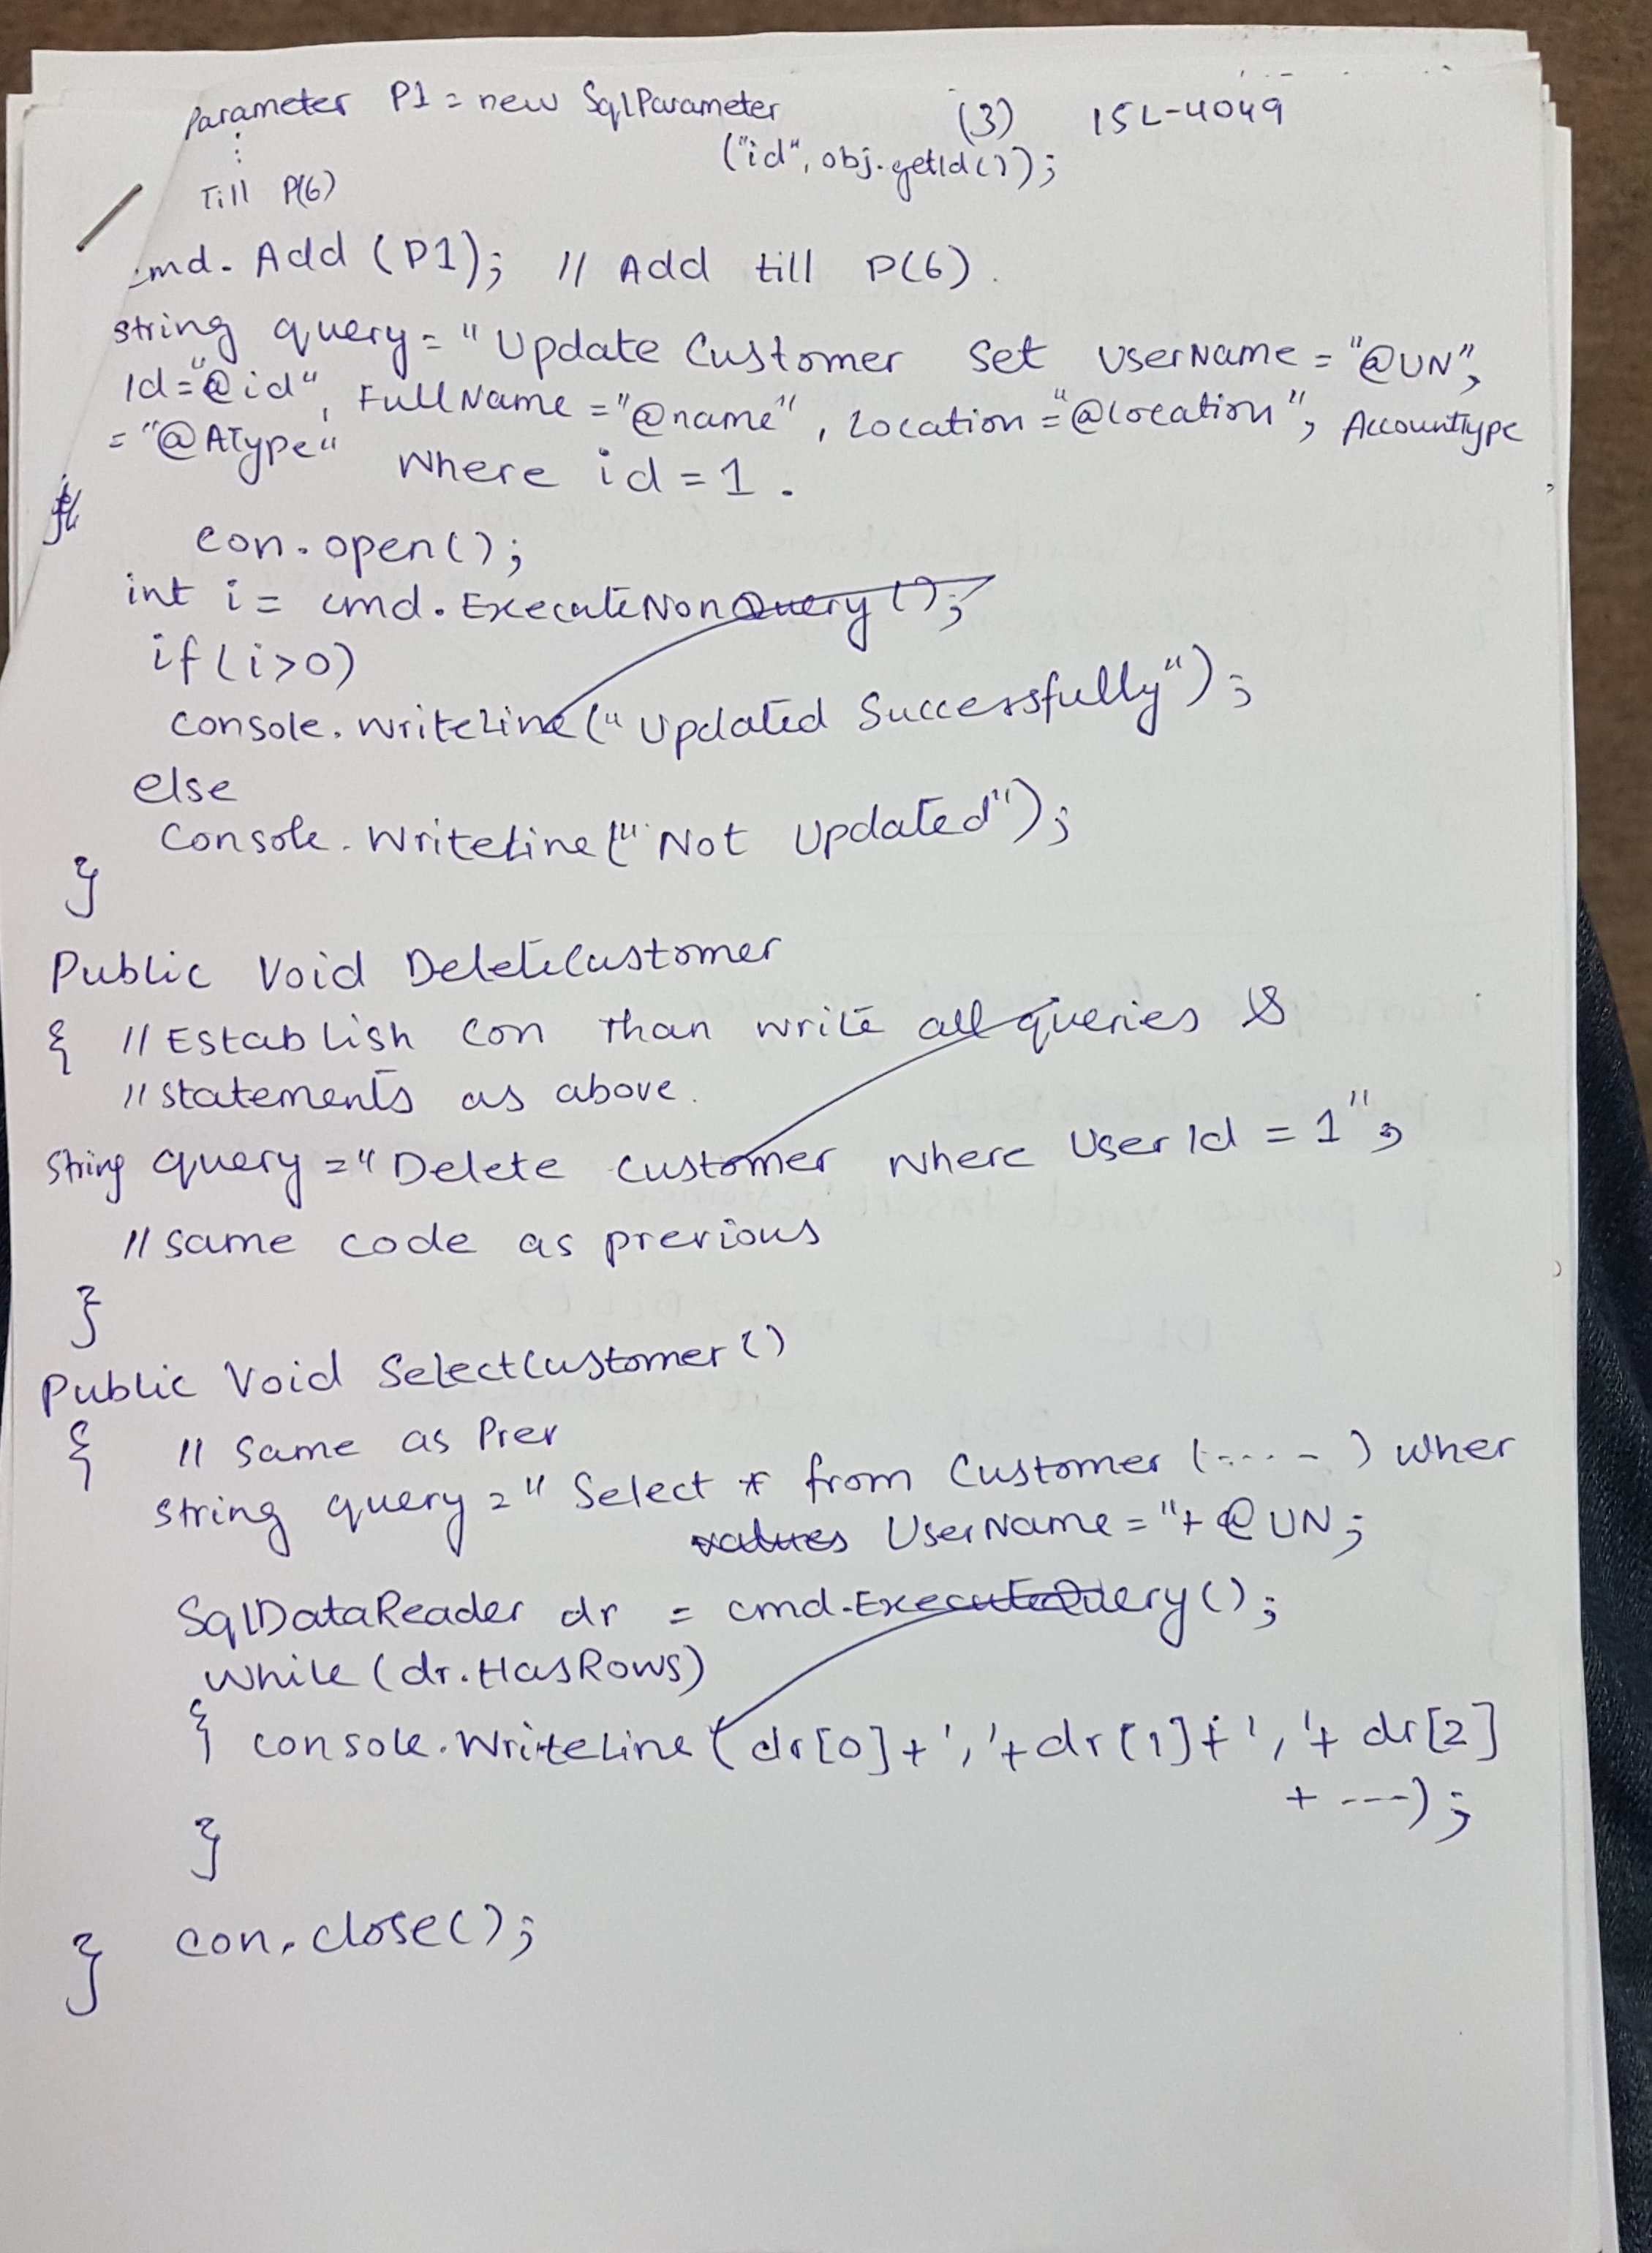 Parameter P1 = new SqlParameter (3) 15L-4049
("id", obj.getId());
:
Till P(6)
cmd. Add (P1); // Add till P(6).
string query = " Update Customer Set UserName = "@UN",
Id="@id", FullName ="@name", Location ="@location", AccountType
= "@AType" Where id = 1 .
con.open();
int i = cmd.ExecuteNonQuery();
if(i>0)
Console.WriteLine(" Updated Successfully");
else
Console.WriteLine(" Not Updated");
}
Public Void DeleteCustomer
{ // Establish con than write all queries &
// statements as above.
String query =" Delete Customer where UserId = 1";
// same code as previous
}
Public Void SelectCustomer()
{ // Same as Prev
string query = " Select * from Customer (.... - ) wher
values UserName = "+ @UN;
SqlDataReader dr = cmd.ExecuteQuery();
while (dr.HasRows)
{ console.WriteLine(dr[0]+','+dr[1]+','+ dr[2]
+ ---);
}
con.close();
}